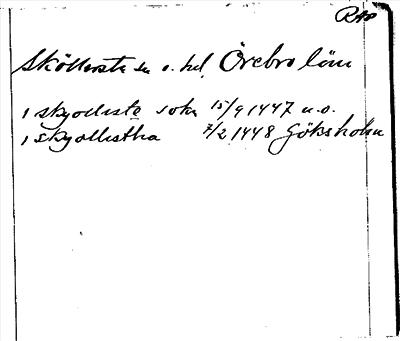 RAP
Sköllersta sn o. hd, Örebro län
i skyollistæ sokn 15/9 1447 u.o.
i skyallistha 7/2 1448 Göksholm